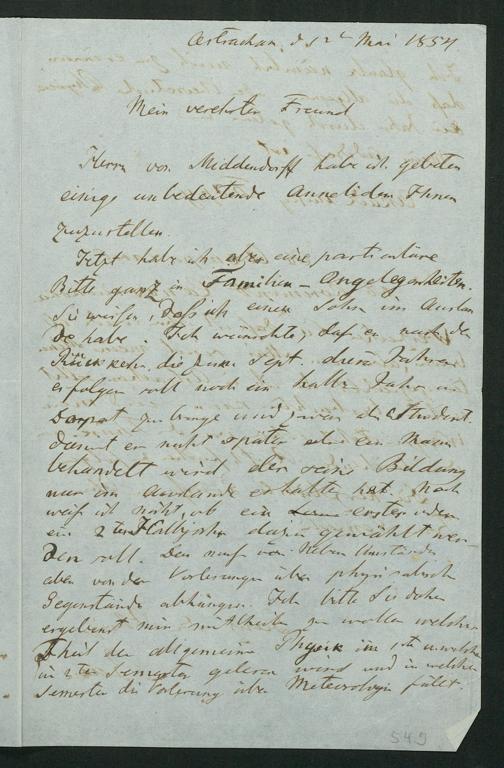 Astrachan, d 12t Mai 1854
Mein verehrter Freund
Herrn von Middendorff habe ich gebeten
einige unbedeutende Anneliden Ihnen
zuzustellen.
Jetzt habe ich aber eine particuläre
Bitte ganz in Familien-Angelegenheiten.
Sie wissen, daß ich einen Sohn im Auslan
de habe. Ich wünschte, daß er nach der
Rückkehr, die zum Sept. dieses Jahres
erfolgen soll noch ein halbes Jahr in
Dorpat zubringe und zwar als Student.
damit er nicht später als ein Mann
behandelt wird der seine Bildung
nur im Auslande erhalten hat. Noch
weiß ich nicht, ob ein erstes oder
ein 2tes Halbjahr dazu gewählt wer
den soll. Den muß von Neben Umständen
aber von den Vorlesungen über physicalische
Gegenstände abhängen. Ich bitte Sie daher
ergebenst mir mittheilen zu wollen welcher
Theil der allgemeinen Physik im 1sten u. welcher
im 2ten Semester gelesen wird und in welchem
Semester die Vorlesung über Meteorologie fällt.
549